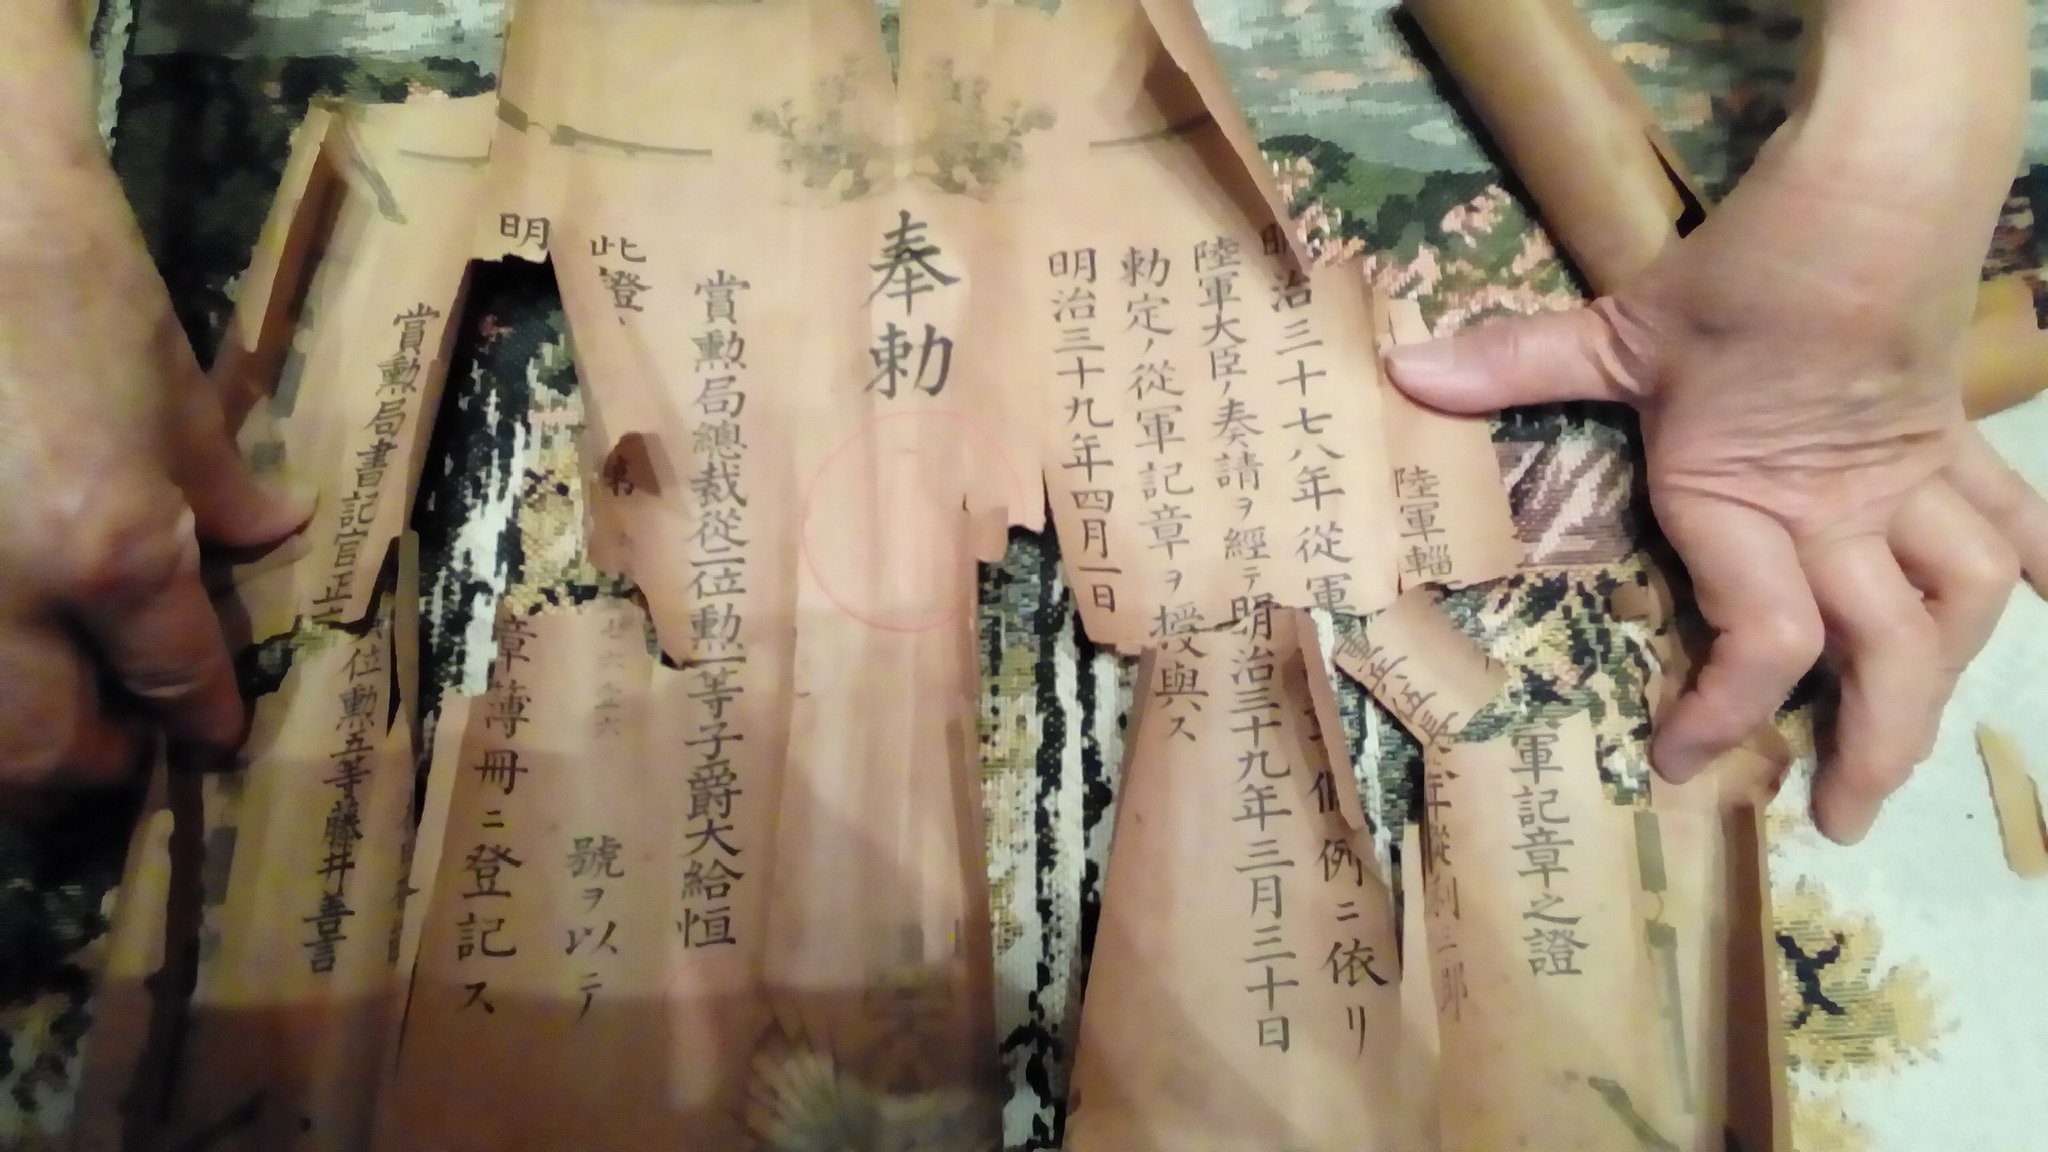 軍記章之證
陸軍輜
明治三十七八年從軍
例ニ依リ
陸軍大臣ノ奏請ヲ經テ明治三十九年三月三十日
勅定ノ從軍記章ヲ授與ス
明治三十九年四月一日
奉勅
賞勲局總裁從二位勲一等子爵大給恒
此證ヲ
第
號ヲ以テ
明
章簿冊ニ登記ス
賞勲局書記官正
位勲五等藤井善言